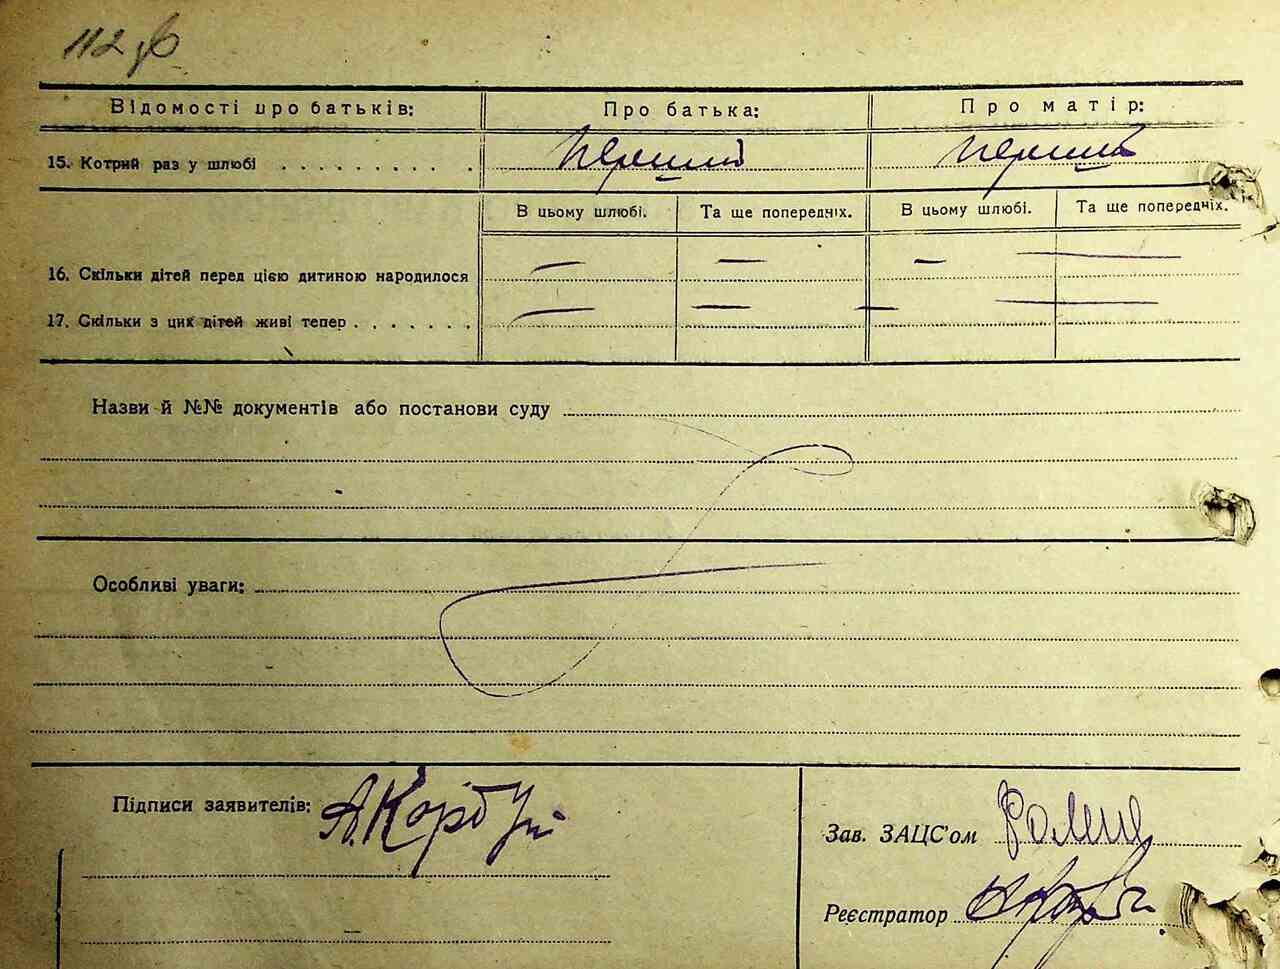 112 зв
Відомості про батьків: Про батька: Про матір:
15. Котрий раз у шлюбі . . . . . . . . . . перший перший
В цьому шлюбі. Та ще попередніх. В цьому шлюбі. Та ще попередніх.
16. Скільки дітей перед цією дитиною народилося — — — —
17. Скільки з цих дітей живі тепер . . . . . . . — — — —
Назви й №№ документів або постанови суду
Особливі уваги:
Підписи заявителів:
Зав. ЗАЦС'ом
Реєстратор